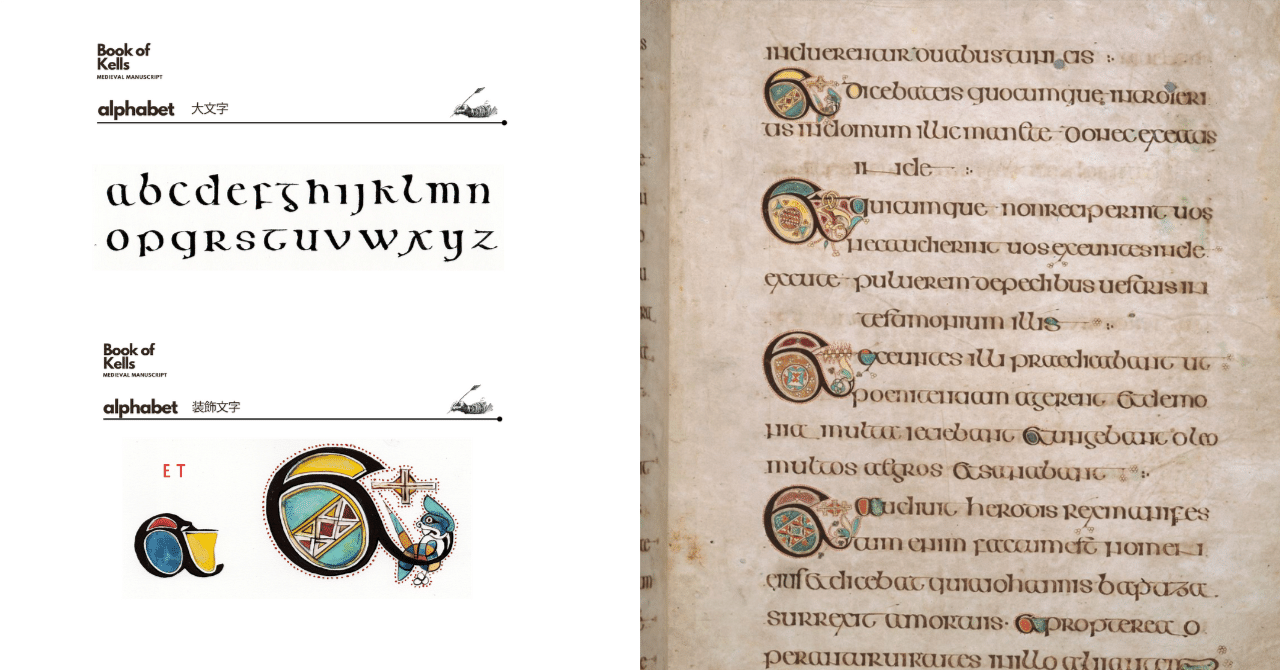 Book of
Kells
MEDIEVAL MANUSCRIPT
alphabet 大文字
abcdefghijklmn
opqrstuvwxyz
Book of
Kells
MEDIEVAL MANUSCRIPT
alphabet 装飾文字
ET
Et
Et
induerentur duabus tunicis
Et dicebat eis quocumque introieri
tis in domum illic manete donec exeatis
inde
Et quicumque non reciperint uos
nec audierint uos exeuntes inde
excute puluerem de pedibus uestris in
testamonium illis
Et exeuntes illi praedicabant ut
poenitentiam agerent Et demo
nia multa ieciebant Et ungebant oleo
multos aegros Et sanabant
Et audiuit herodis rex manifes
tum enim factum est nomen
eius Et dicebat quia iohannis baptiza
surrexit a mortuis. Et propterea o
perantur uirtutes in illo